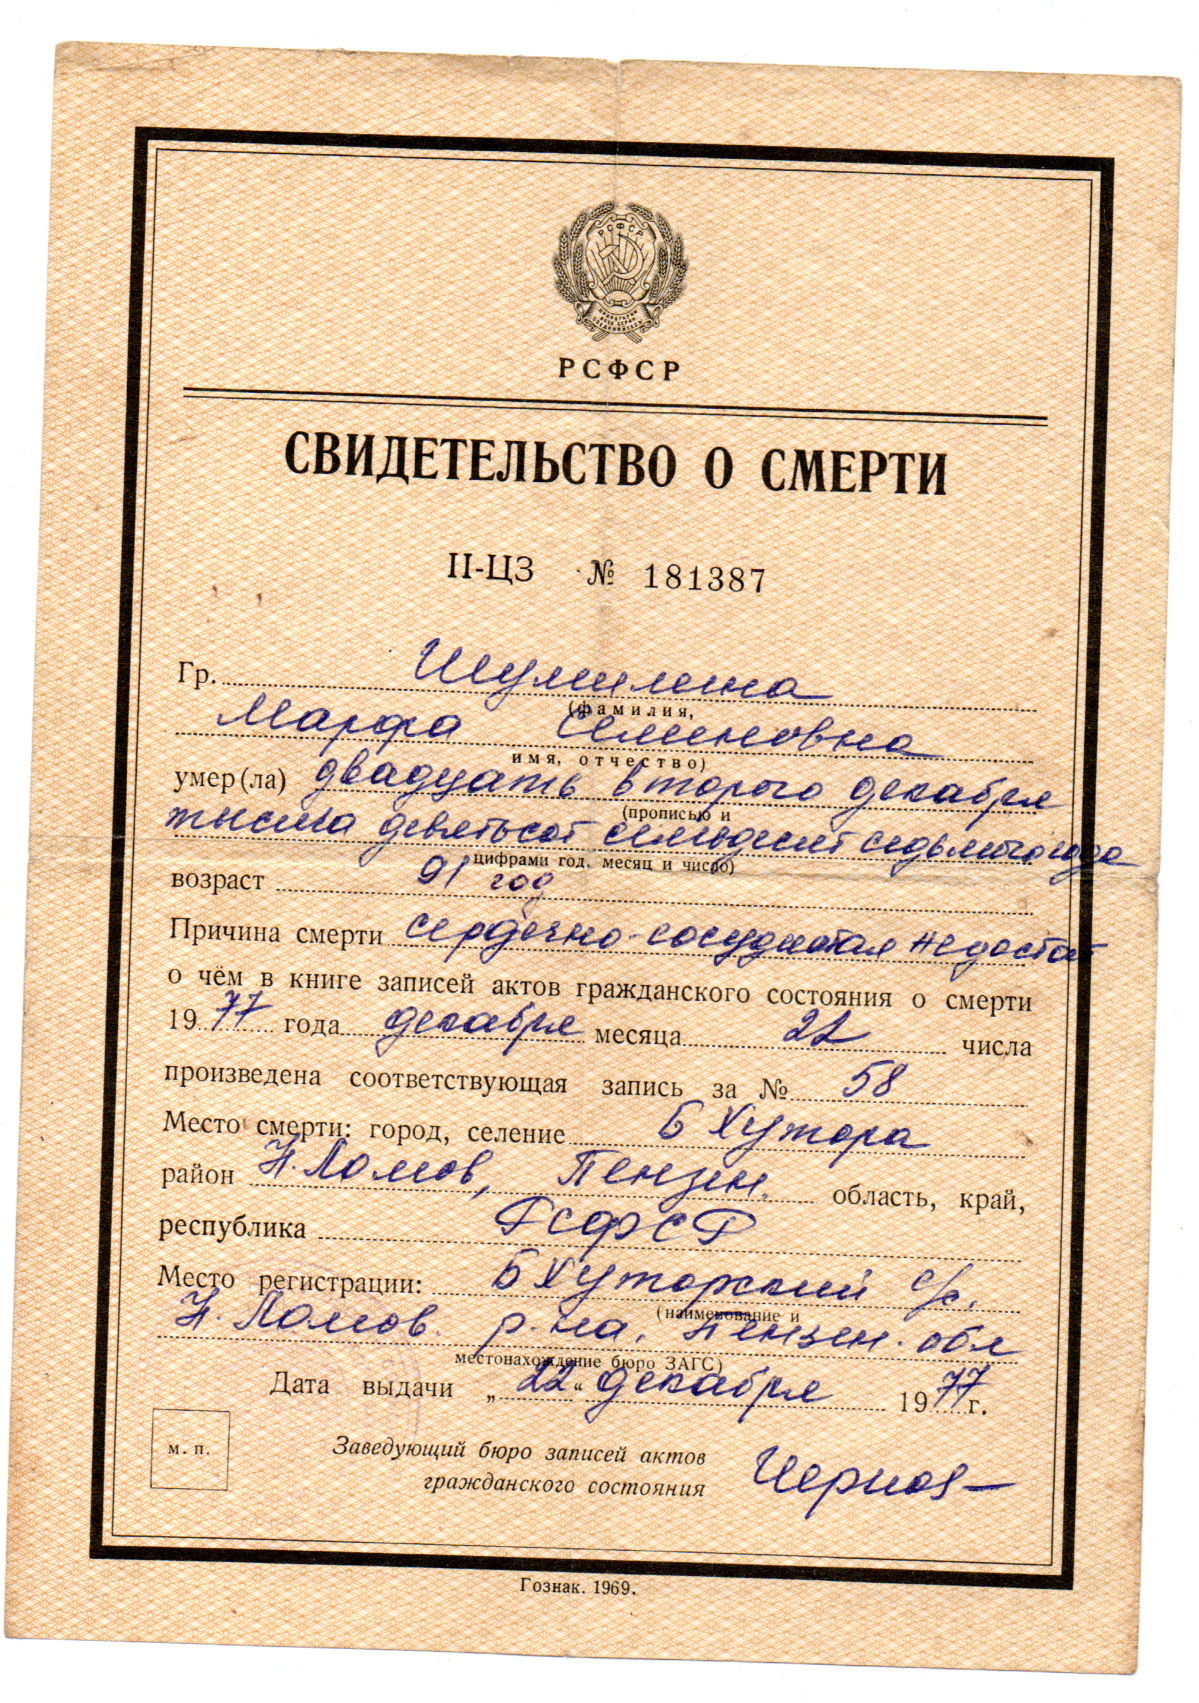 РСФСР
ПРОЛЕТАРИИ
ВСЕХ СТРАН
СОЕДИНЯЙТЕСЬ
РСФСР
СВИДЕТЕЛЬСТВО О СМЕРТИ
II-ЦЗ № 181387
Гр. Шумилина
(фамилия,
Марфа Семеновна
имя, отчество)
умер(ла) двадцать второго декабря
(прописью и
тысяча девятьсот семьдесят седьмого года
цифрами год, месяц и число)
возраст 91 год
Причина смерти сердечно-сосудистая недостат
о чём в книге записей актов гражданского состояния о смерти
19 77 года декабря месяца 22 числа
произведена соответствующая запись за № 58
Место смерти: город, селение Б Хутора
район Н. Ломов, Пензен. область, край,
республика РСФСР
Место регистрации: Б Хуторский с/с.
(наименование и
Н. Ломов. р-на. Пензен. обл
местонахождение бюро ЗАГС)
Дата выдачи „ 22 “ декабря 19 77 г.
м. п.
Заведующий бюро записей актов
гражданского состояния
Гознак. 1969.